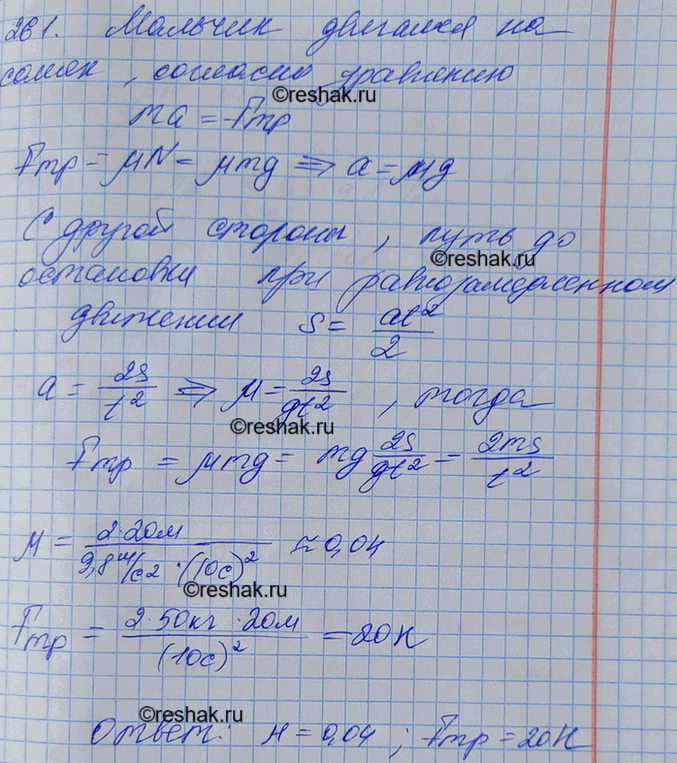 261. Мальчик двигался на
санках, согласно уравнению
©reshak.ru
ma = Fтр
Fтр = μN = μmg ⇒ a = μg
С другой стороны, путь до
©reshak.ru
остановки при равнозамедленном
движении S = at²/2
a = 2s/t² ⇒ μ = 2s/gt², тогда
©reshak.ru
Fтр = μmg = mg 2s/gt² = 2ms/t²
μ = 2·20м / 9,8м/с2·(10с)² ≈ 0,04
©reshak.ru
Fтр = 2·50кг·20м / (10с)² = 20Н
©reshak.ru
Ответ: μ = 0,04; Fтр = 20Н